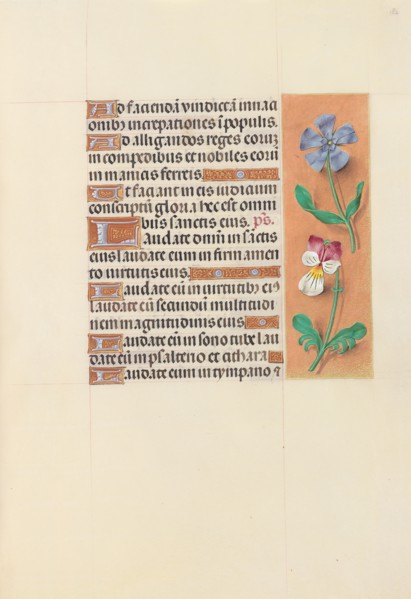 Ad faciendā vindictā in naci
onibꝫ increpationes ī populis.
Ad alligandos reges eorūꝫ
in compedibus et nobiles eorū
in manicis ferreis.
Ut faciant in eis iudicium
conscriptū gloria hec est omni
bus sanctis eius. p̄s.
Laudate dnm̄ in sāctis
eius laudate eum in firmamen
to virtutis eius.
Laudate eū in virtutibꝫ ei9
laudate eū secundū multitudi
nem magnitudinis eius
Laudate eū in sono tube lau
date eū in psalterio et cithara
Laudate eum in tympano ⁊